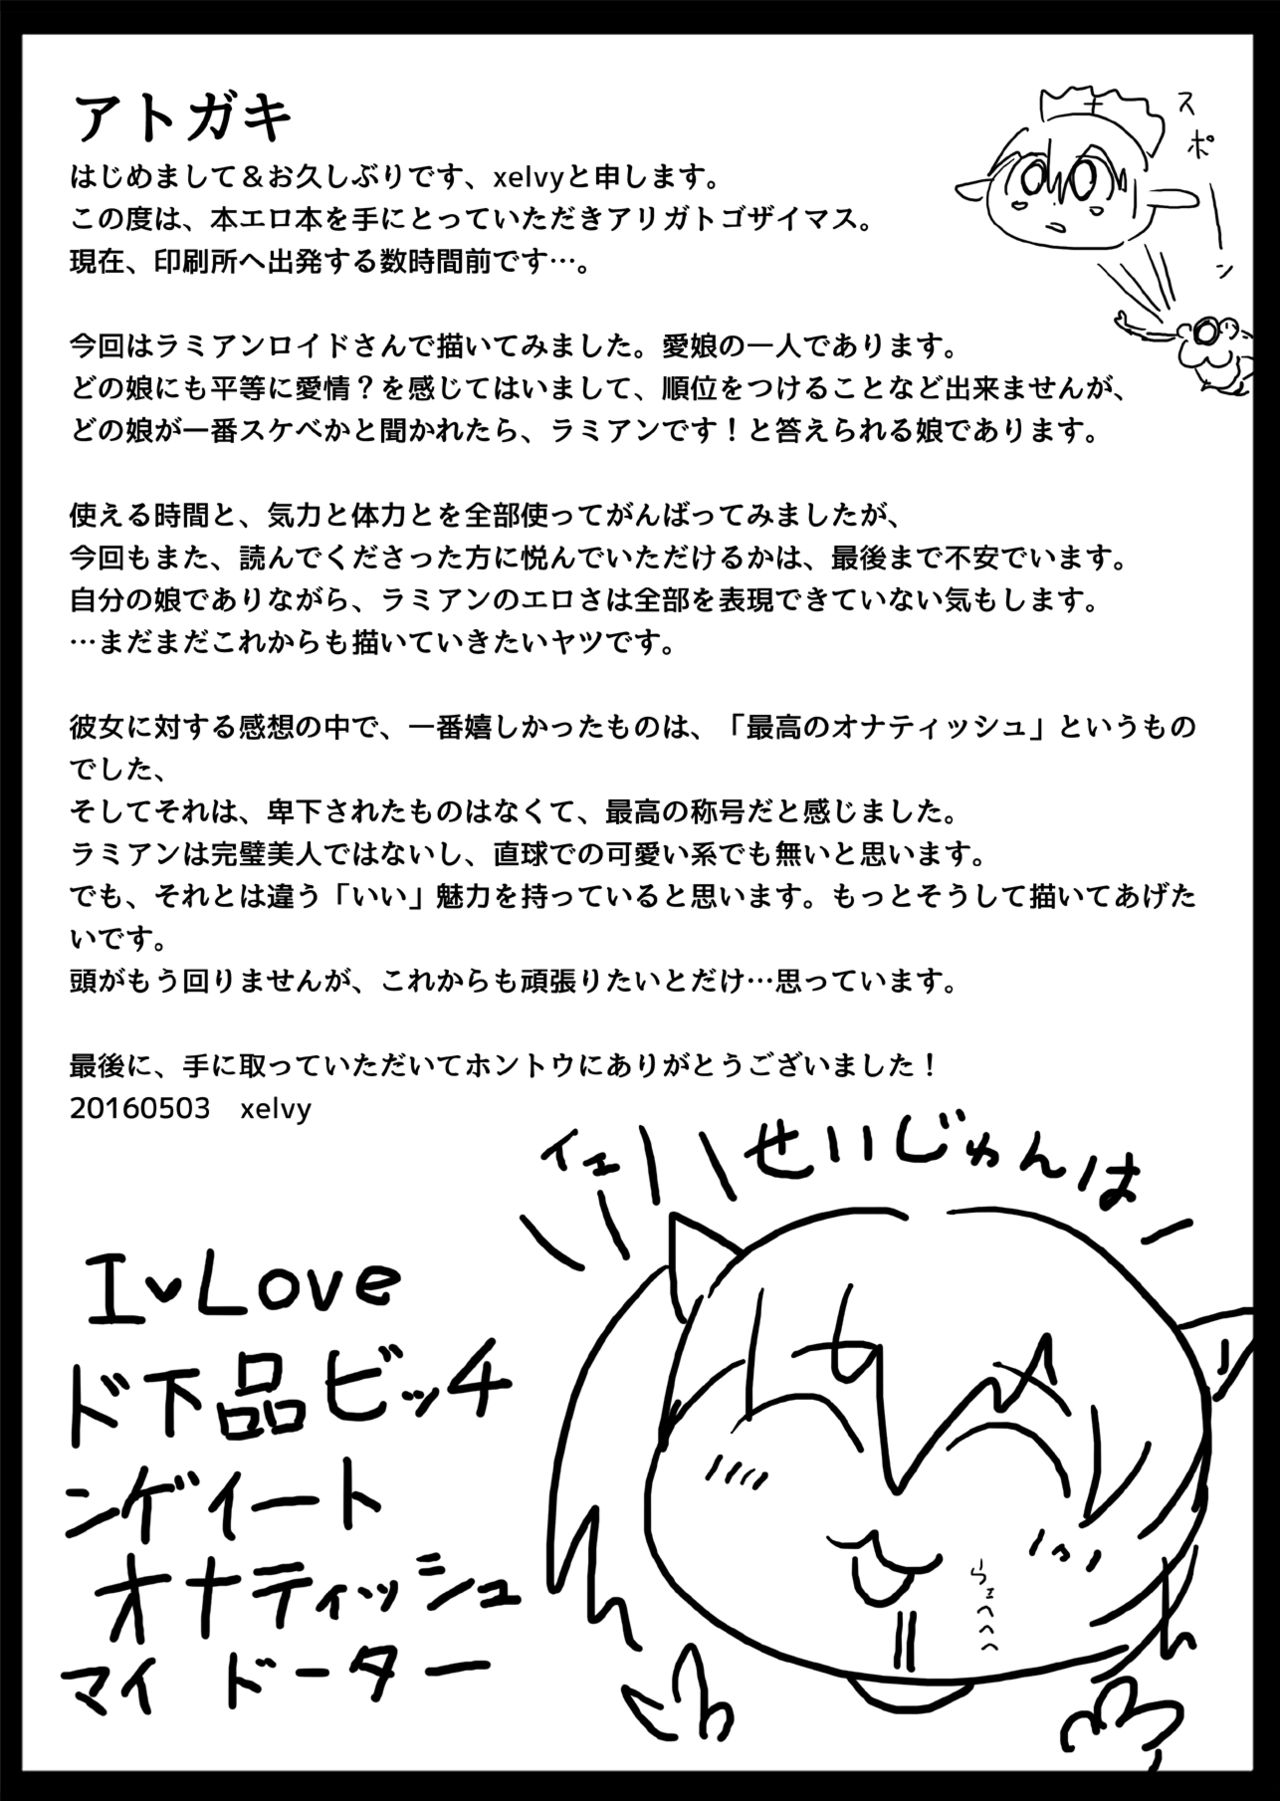 アトガキ
はじめまして＆お久しぶりです、xelvyと申します。
この度は、本エロ本を手にとっていただきアリガトゴザイマス。
現在、印刷所へ出発する数時間前です…。
スポーン
今回はラミアンロイドさんで描いてみました。愛娘の一人であります。
どの娘にも平等に愛情？を感じてはいまして、順位をつけることなど出来ませんが、
どの娘が一番スケベかと聞かれたら、ラミアンです！と答えられる娘であります。
使える時間と、気力と体力とを全部使ってがんばってみましたが、
今回もまた、読んでくださった方に悦んでいただけるかは、最後まで不安でいます。
自分の娘でありながら、ラミアンのエロさは全部を表現できていない気もします。
…まだまだこれからも描いていきたいヤツです。
彼女に対する感想の中で、一番嬉しかったものは、「最高のオナティッシュ」というもの
でした、
そしてそれは、卑下されたものはなくて、最高の称号だと感じました。
ラミアンは完璧美人ではないし、直球での可愛い系でも無いと思います。
でも、それとは違う「いい」魅力を持っていると思います。もっとそうして描いてあげた
いです。
頭がもう回りませんが、これからも頑張りたいとだけ…思っています。
最後に、手に取っていただいてホントウにありがとうございました！
20160503　xelvy
イエー
せいじゅんはー
I♥Love
ド下品ビッチ
ンゲイート
オナティッシュ
マイ ドーター
らェへへへ